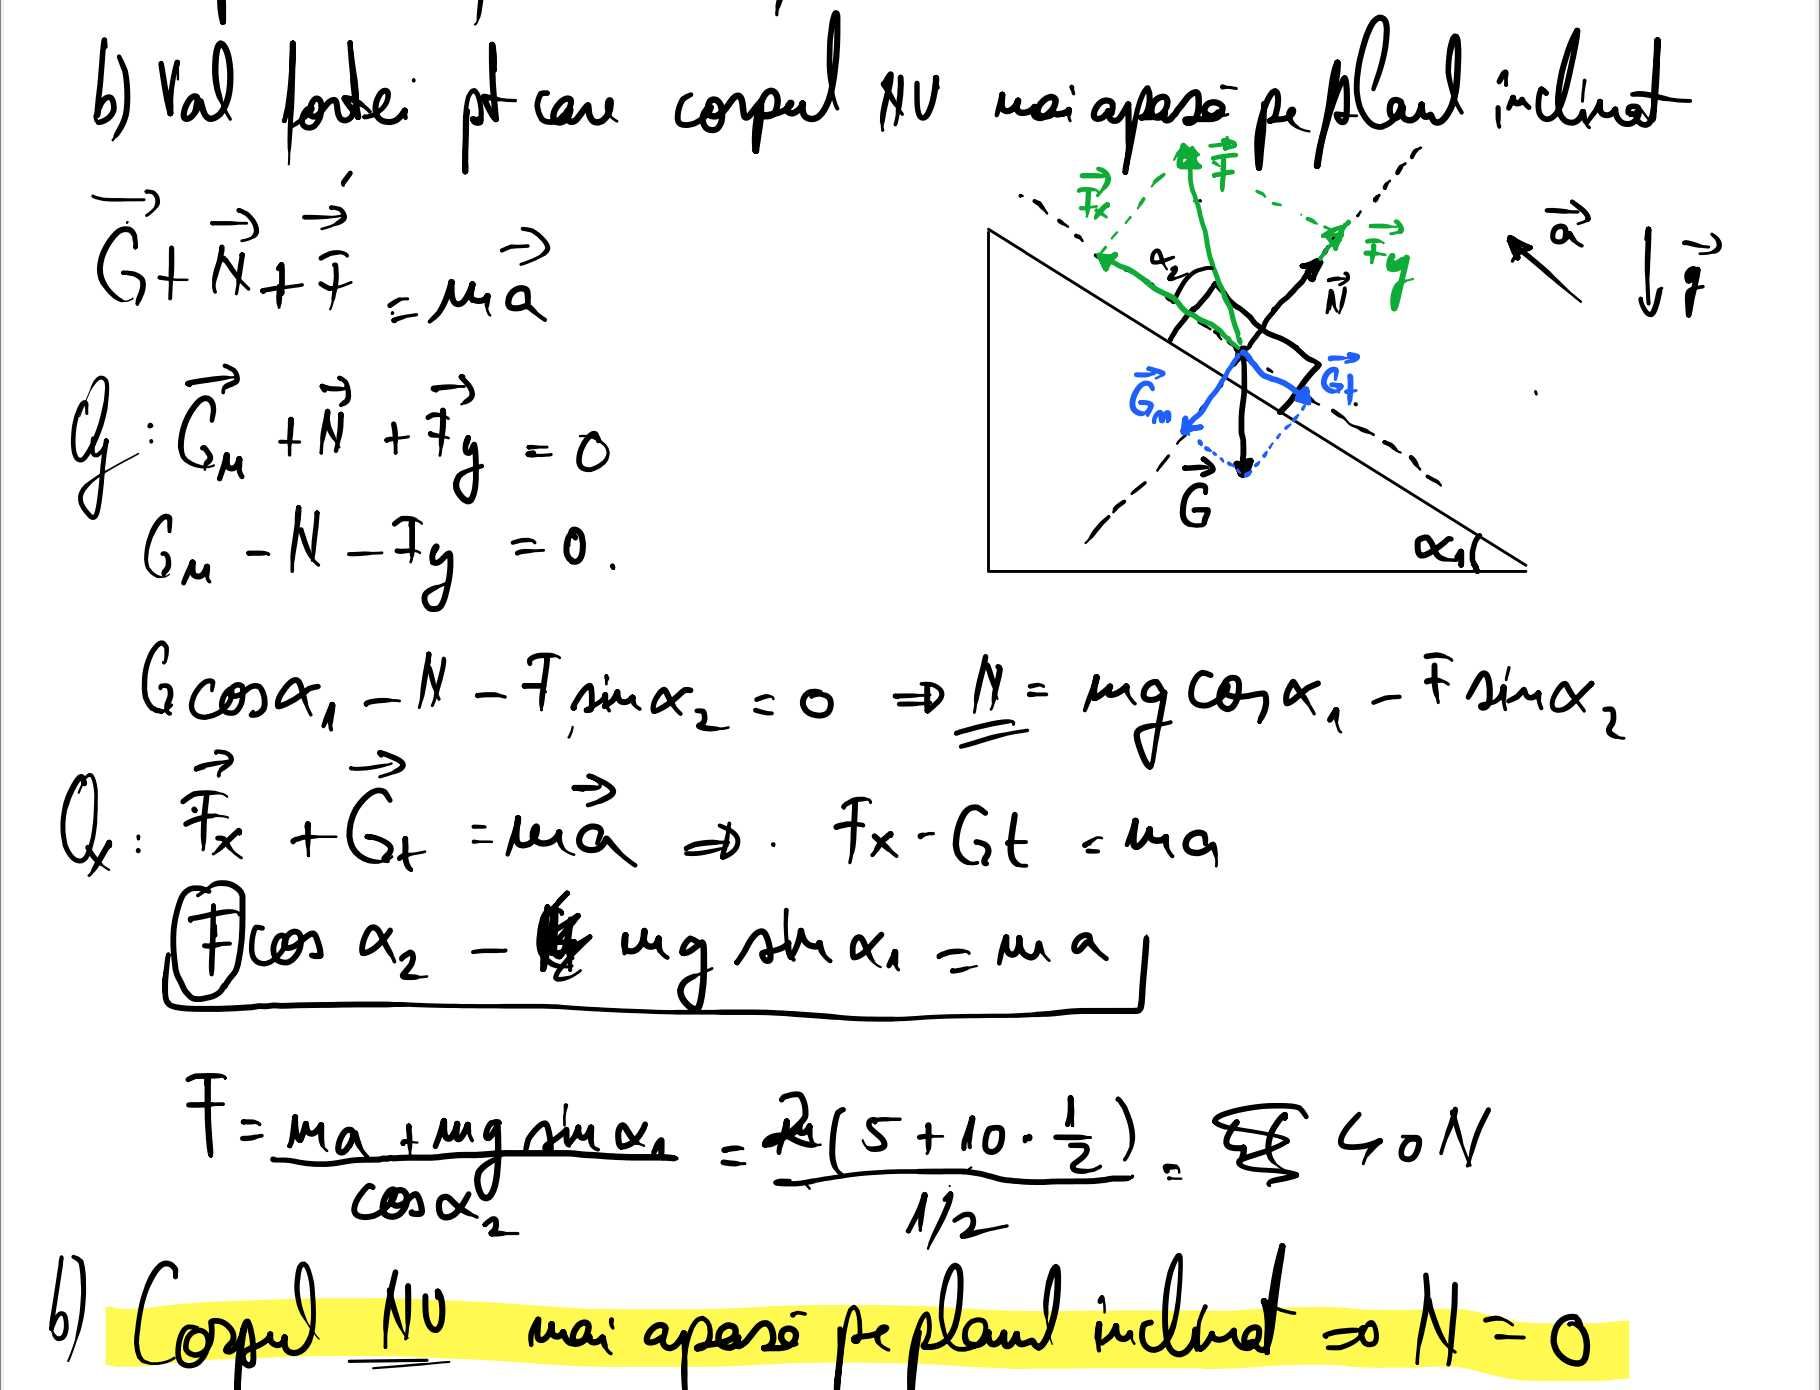 b) Val forței pt care corpul NU mai apasă pe planul înclinat
G⃗ + N⃗ + F⃗ = ma⃗
Oy: G⃗n + N⃗ + F⃗y = 0
Gn - N - Fy = 0.
G cos α₁ - N - F sin α₂ = 0 ⇒ N = mg cos α₁ - F sin α₂
Ox: F⃗x + G⃗t = ma⃗ ⇒ Fx - Gt = ma
F cos α₂ - mg sin α₁ = ma
F = (ma + mg sin α₁) / cos α₂ = 2(5 + 10 · 1/2) / 1/2 = 40 N
b) Corpul NU mai apasă pe planul înclinat ⇒ N = 0
F⃗x
F⃗
α₂
F⃗y
N⃗
a⃗
g⃗
G⃗n
G⃗t
G⃗
α₁